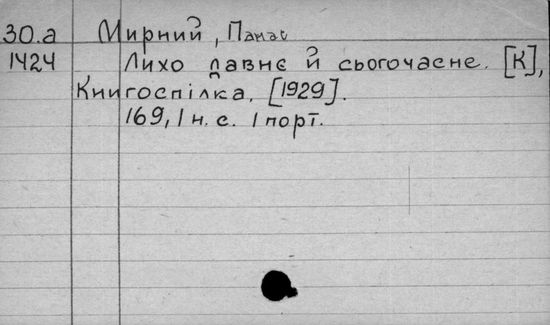 30.а Мирний, Панас
1424 Лихо давнє й сьогочасне. [К],
Книгоспілка, [1929].
169, 1 н. с. 1 порт.